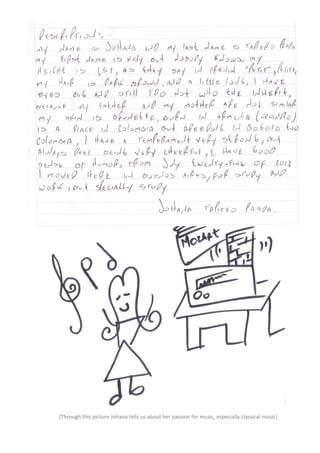 Descriptions:
my name is Johana and my last name is Tafirzo Parra
my first name is very but nobody knows, my
height is 1,57, as they say in french "petite", petite,
my hair is dark brown, and a little long, I have
eyes big and still I do not who the inherit,
because my father and my mother are not similar
my skin is brunette, born in armenia (Quindio)
is a place in Colombia but already in Bogota two
Colombia, I have a temperament very strong, but
always been being very cheerful, I have good
sense of humor, from July twenty-five of 2012
I moved here in buenos aires, for study and
work, but specially study
Johana Parra.
MOZART
(Through this picture Johana tells us about her passion for music, especially classical music)